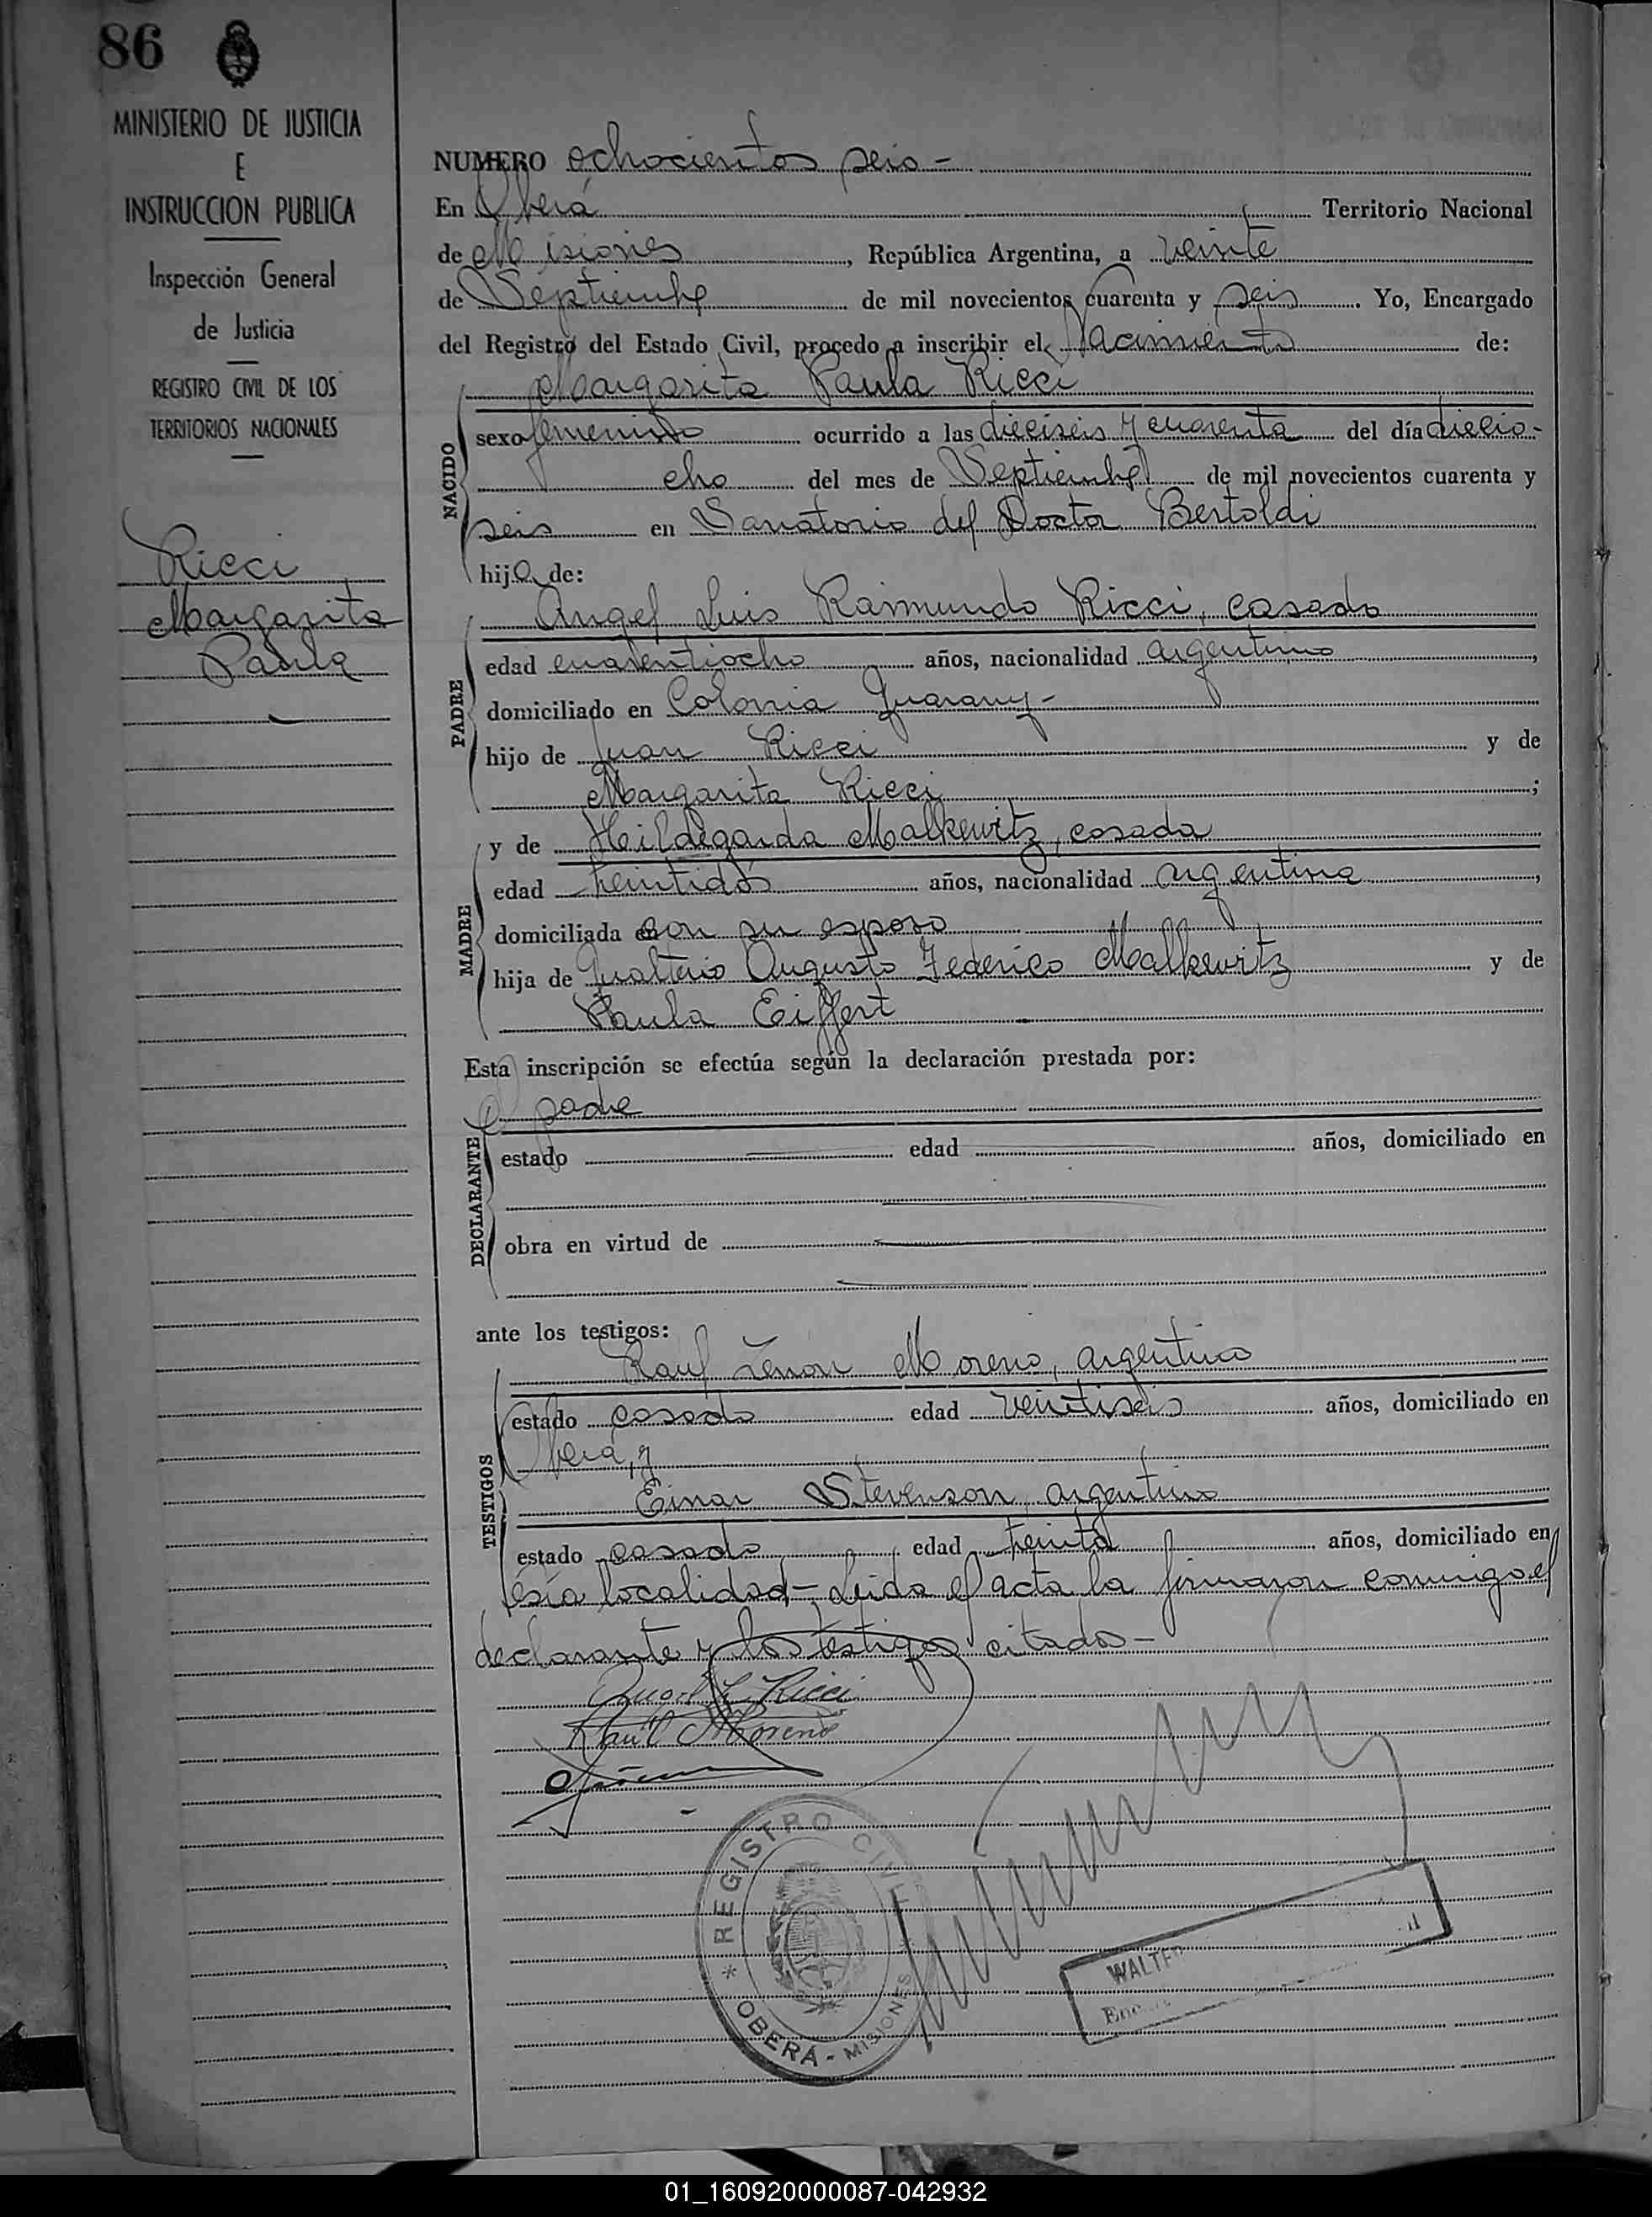 86
MINISTERIO DE JUSTICIA
E
INSTRUCCION PUBLICA
Inspección General
de Justicia
REGISTRO CIVIL DE LOS
TERRITORIOS NACIONALES
Ricci
Margarita
Paula
NUMERO ochocientos seis -
En Oberá Territorio Nacional
de Misiones, República Argentina, a veinte
de Septiembre de mil novecientos cuarenta y seis. Yo, Encargado
del Registro del Estado Civil, procedo a inscribir el Nacimiento de:
NACIDO
Margarita Paula Ricci
sexo femenino ocurrido a las dieciseis y cuarenta del día diecio-
cho del mes de Septiembre de mil novecientos cuarenta y
seis en Sanatorio del Doctor Bertoldi
hija de:
PADRE
Angel Luis Raimundo Ricci, casado
edad cuarentiocho años, nacionalidad argentino,
domiciliado en Colonia Guarany -
hijo de Juan Ricci y de
Margarita Ricci;
MADRE
y de Hildegarda Malkewitz, casada
edad treintidós años, nacionalidad argentina,
domiciliada con su esposo
hija de Gualterio Augusto Federico Malkewitz y de
Paula Eiffert
Esta inscripción se efectúa según la declaración prestada por:
DECLARANTE
el padre
estado edad años, domiciliado en
obra en virtud de
ante los testigos:
TESTIGOS
Raul Zenon Moreno, argentino
estado casado edad veintiseis años, domiciliado en
Oberá, y
Einar Stevenson, argentino
estado casado edad treinta años, domiciliado en
esta localidad.- Leida el acta la firmaron conmigo el
declarante y los testigos citados -
Angel L. Ricci
Raúl Moreno
* REGISTRO CIVIL * OBERÁ - MISIONES
WALTER
01_160920000087-042932